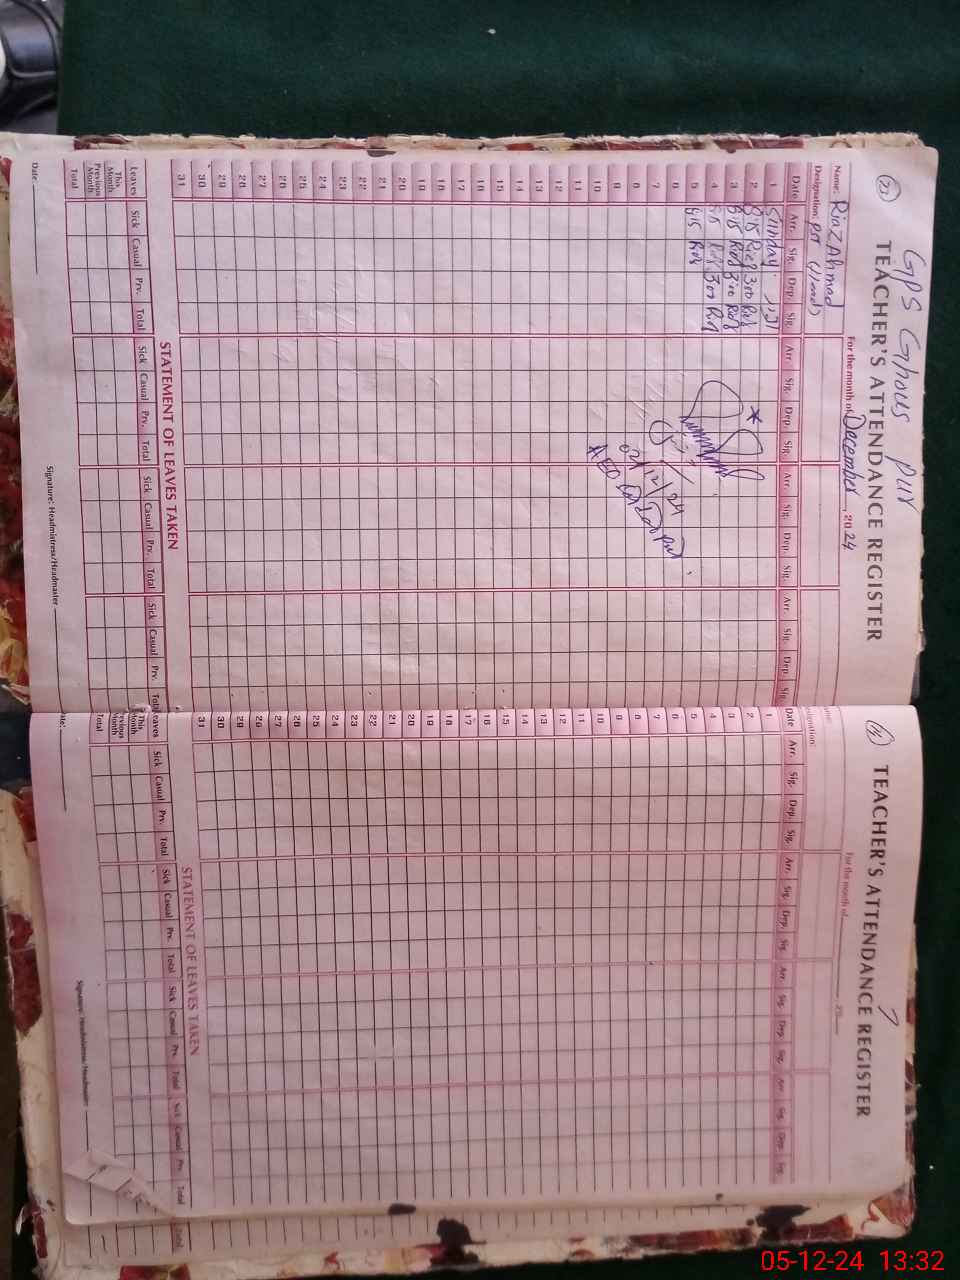 23
GPS Ghous pur
TEACHER'S ATTENDANCE REGISTER
For the month of December, 2024
Name: Riaz Ahmad
Designation: PST
Date Arr. Sig. Dep. Sig. Arr. Sig. Dep. Sig. Arr. Sig. Dep. Sig. Arr. Sig. Dep. Sig.
1 Sunday
2 8:15 Riaz 3:00 Riaz
3 8:15 Riaz 3:00 Riaz
4 8:15 Riaz 3:00 Riaz
5 8:15 Riaz
6
7
8
9
10
11
12
13
14
15
16
17
18
19
20
21
22
23
24
25
26
27
28
29
30
31
02/12/24
AEO
STATEMENT OF LEAVES TAKEN
Leaves Sick Casual Prv. Total Sick Casual Prv. Total Sick Casual Prv. Total Sick Casual Prv. Total
This Month
Previous Month
Total
Date
Signature: Headmistress/Headmaster
TEACHER'S ATTENDANCE REGISTER
For the month of
Designation:
Date Arr. Sig. Dep. Sig. Arr. Sig. Dep. Sig. Arr. Sig. Dep. Sig. Arr. Sig. Dep. Sig.
1
2
3
4
5
6
7
8
9
10
11
12
13
14
15
16
17
18
19
20
21
22
23
24
25
26
27
28
29
30
31
STATEMENT OF LEAVES TAKEN
Leaves Sick Casual Prv. Total Sick Casual Prv. Total Sick Casual Prv. Total Sick Casual Prv. Total
This Month
Previous Month
Total
Date:
Signature: Headmistress/Headmaster
05-12-24 13:32